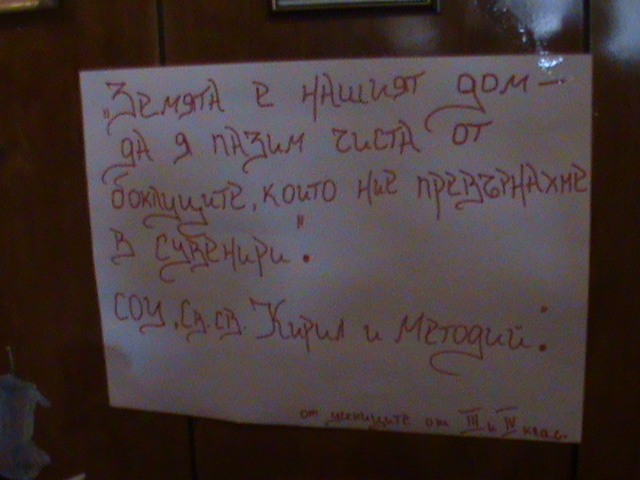 „Земята е нашият дом –
да я пазим чиста от
боклуците, които ние превърнахме
в сувенири".
СОУ „Св. св. Кирил и Методий":
от учениците от III и IV клас.